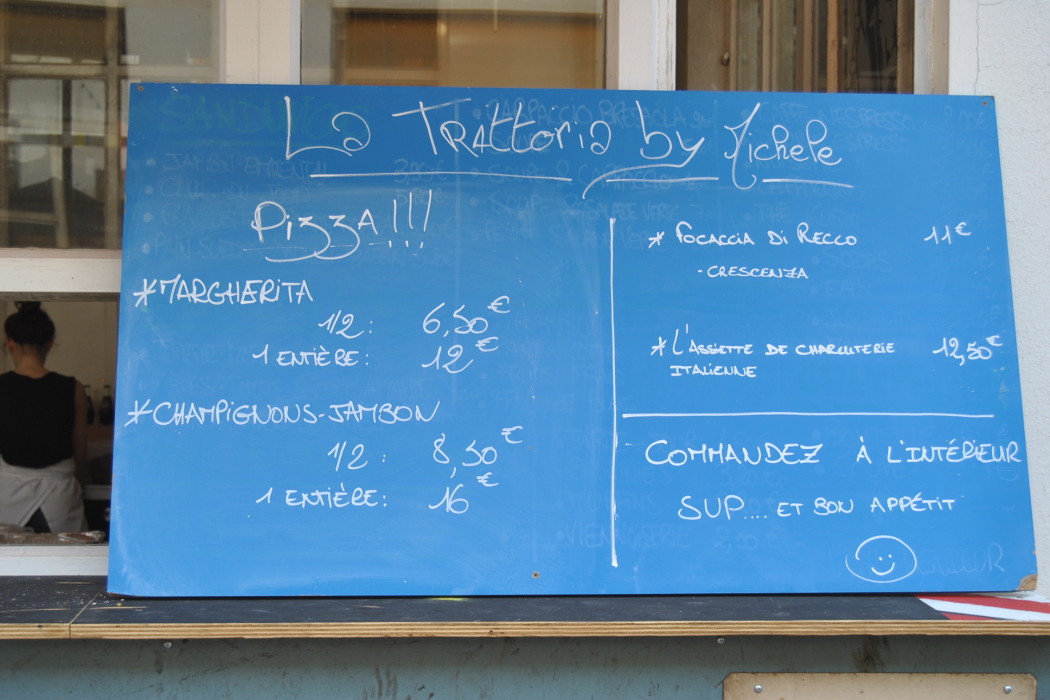 La Trattoria by Michele
Pizza!!!
*MARGHERITA
1/2: 6,50€
1 ENTIÈRE: 12€
*CHAMPIGNONS-JAMBON
1/2: 8,50€
1 ENTIÈRE: 16€
* FOCACCIA DI RECCO 11€
-CRESCENZA
* L'ASSIETTE DE CHARCUTERIE 12,50€
ITALIENNE
COMMANDEZ À L'INTÉRIEUR
SUP.... ET BON APPÉTIT